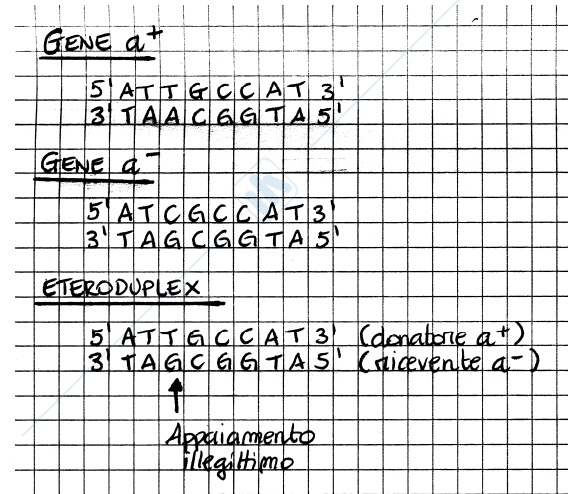 GENE a⁺
5' A T T G C C A T 3'
3' T A A C G G T A 5'
GENE a⁻
5' A T C G C C A T 3'
3' T A G C G G T A 5'
ETERODUPLEX
5' A T T G C C A T 3' (donatore a⁺)
3' T A G C G G T A 5' (ricevente a⁻)
Appaiamento
illegittimo